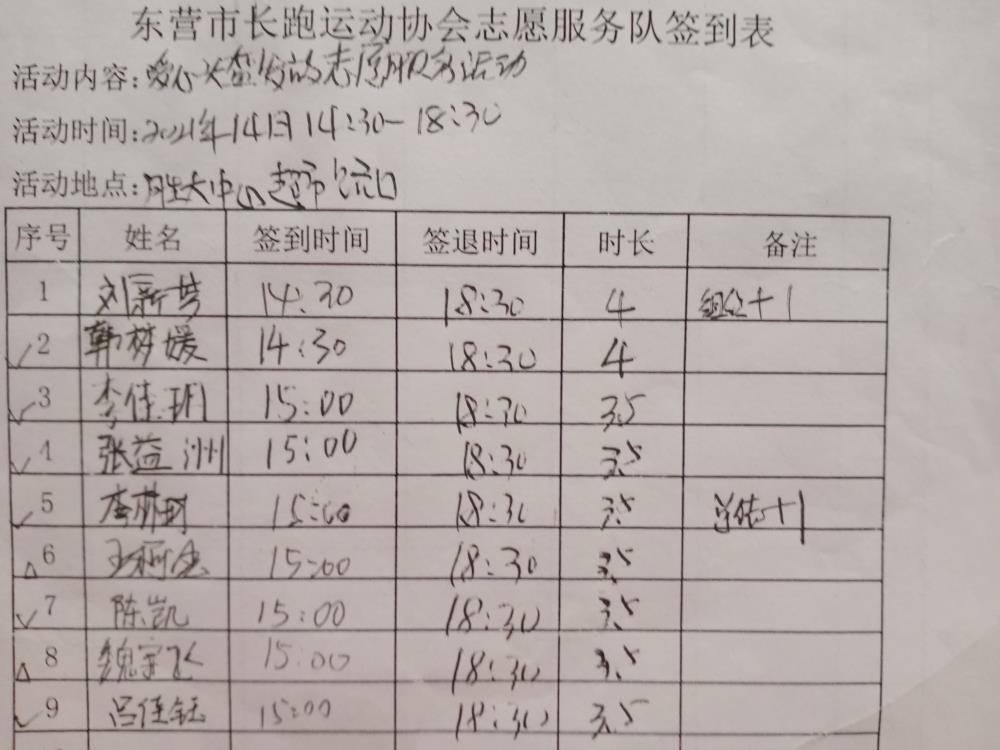 东营市长跑运动协会志愿服务队签到表
活动内容:爱心头盔发放志愿服务活动
活动时间:2021年14日14:30-18:30
活动地点:胜大中心超市出口
序号 姓名 签到时间 签退时间 时长 备注
1 刘新芳 14:30 18:30 4 组织+1
2 韩梦媛 14:30 18:30 4
3 李佳玥 15:00 18:30 3.5
4 张益洲 15:00 18:30 3.5
5 15:00 18:30 3.5 总结+1
6 15:00 18:30 3.5
7 陈凯 15:00 18:30 3.5
8 魏宗飞 15:00 18:30 3.5
9 吕佳钰 15:00 18:30 3.5